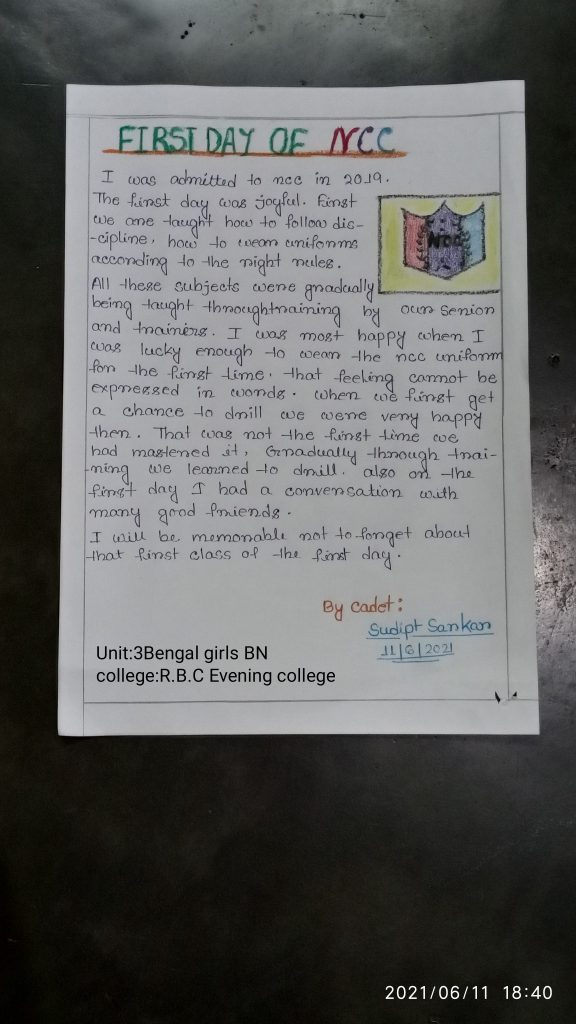 FIRST DAY OF NCC
I was admitted to ncc in 2019.
The first day was joyful. First
we are taught how to follow dis-
-cipline, how to wear uniforms
according to the right rules.
NCC
All these subjects were gradually
being taught throughtraining by our senior
and trainers. I was most happy when I
was lucky enough to wear the ncc uniform
for the first time. that feeling cannot be
expressed in words. when we first get
a chance to drill we were very happy
then. That was not the first time we
had mastened it, Gradually through trai-
-ning we learned to drill. also on the
first day I had a conversation with
many good friends.
I will be memorable not to forget about
that first class of the first day.
By cadet:
Sudipt Sarkar
11/6/2021
Unit:3Bengal girls BN
college:R.B.C Evening college
2021/06/11 18:40